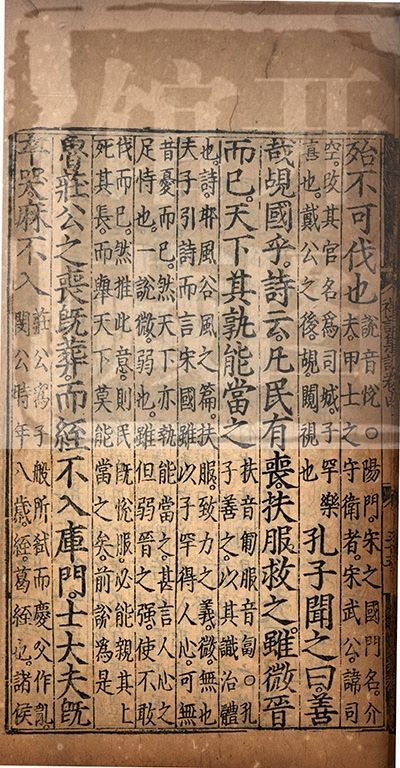 殆不可伐也說音悅。○陽門。宋之國門名。介
夫。甲士之守衛者。宋武公。諱司
空。改其官名為司城。子罕樂
喜也。戴公之後。覘闚視也孔子聞之曰。善
哉覘國乎。詩云。凡民有喪。扶服救之。雖微晉
而已。天下其孰能當之扶音匍服音匐。○孔
子善之。以其識治體
也。詩。邶風谷風之篇。扶服。致力之義。微。無也
夫子引詩而言宋國雖以子罕得人心。可無
晉憂而已。然天下亦孰能當之。甚言人心之
足恃也。一說微。弱也。雖但弱晉之強。使不敢
伐而已。然推此意。則民既悅服。必能親其上
死其長。而舉天下莫能當之矣。前說為是
魯莊公之喪。既葬而絰不入庫門。士大夫既
卒哭麻不入莊公為子般所弒。而慶父作亂。
閔公時年八歲。絰。葛絰也。諸侯